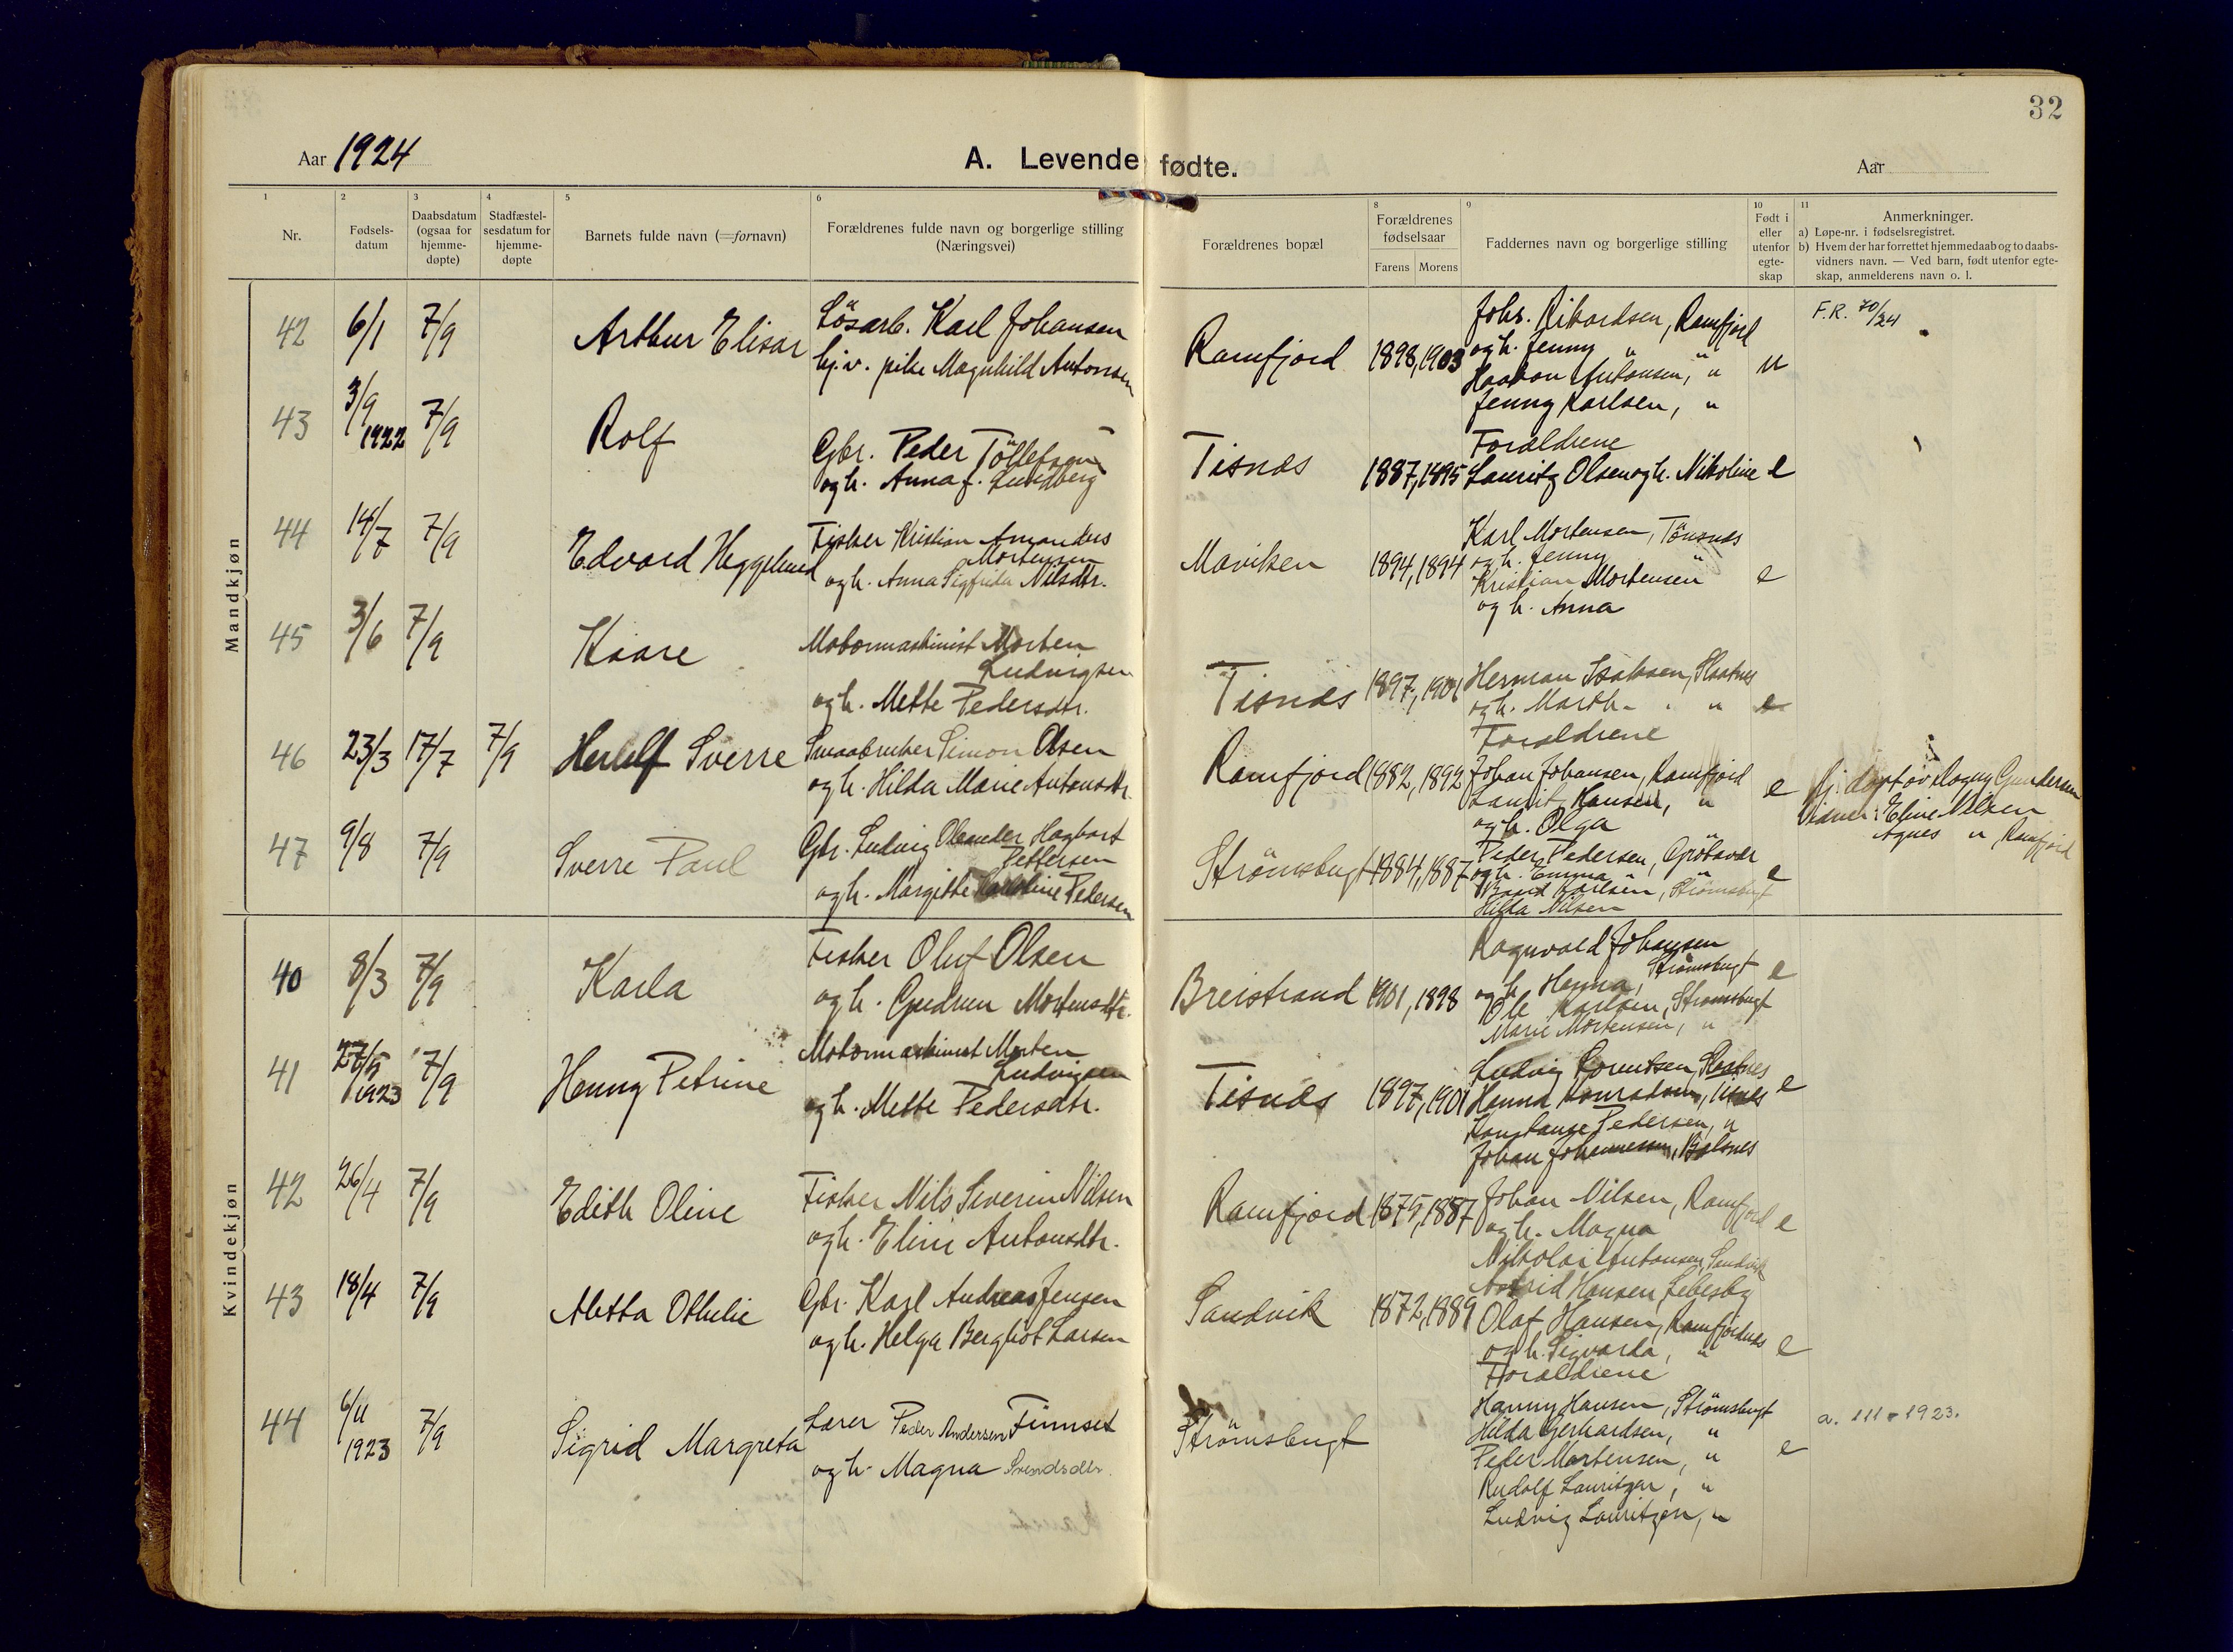 32
Aar 1924
A. Levende fødte.
Aar
1 2 3 4 5 6 8 9 10 11
Nr.
Fødsels-
datum
Daabsdatum
(ogsaa for
hjemme-
døpte)
Stadfæstel-
sesdatum for
hjemme-
døpte
Barnets fulde navn (=fornavn)
Forældrenes fulde navn og borgerlige stilling
(Næringsvei)
Forældrenes bopæl
Forældrenes
fødselsaar
Farens Morens
Faddernes navn og borgerlige stilling
Født i
eller
utenfor
egte-
skap
Anmerkninger.
a) Løpe-nr. i fødselsregistret.
b) Hvem der har forrettet hjemmedaab og to daabs-
vidners navn. — Ved barn, født utenfor egte-
skap, anmelderens navn o. l.
Mandkjøn
42 6/1 7/9 Arthur Elisar
Lösarb. Karl Johansen
hj.v. pike Magnhild Antonsen
Ramfjord 1898, 1903
Johs. Rikardsen, Ramfjord
og h. Jenny "
Haakon Antonsen, "
Jenny Karlsen, "
u
F.R. 70/24
43 3/9 1922 7/9 Rolf
Gbr. Peder Töllefsen
og h. Anna f. Lundberg
Tisnes 1887, 1895
Forældrene
Lauritz Olsen og h. Nikoline
e
44 14/7 7/9 Edvard Heggelund
Fisker Kristian Amandus
Mortensen
og h. Anna Sigfrida Nilsdtr.
Maviken 1894, 1894
Karl Mortensen, Tönsnes
og h. Jenny "
Kristian Mortensen
og h. Anna
e
45 3/6 7/9 Kaare
Motormaskinist Morten
Ludvigsen
og h. Mette Pedersdtr.
Tisnes 1897, 1901
Herman Isaksen, Slaatnes
og h. Marth- "
Forældrene
e
46 23/3 17/7 7/9 Herlulf Sverre
Smaabruker Simon Olsen
og h. Hilda Marie Antonsdtr.
Ramfjord 1882, 1892
Johan Johansen, Ramfjord
Laurits Hansen, "
og h. Olga
e
hj. døpt av Dagny Gundersen
Vidner: Eline Nilsen
Agnes " , Ramfjord
47 9/8 7/9 Sverre Paul
Gbr. Ludvig Oleander Hagbart
Jeffersen
og h. Margitte Karoline Pedersen
Strömsbugt 1884, 1887
Peder Pedersen, Grötavær
og h. Emma "
Karlsen, Strömsbugt
Hilda Nilsen
e
Kvindekjøn
40 8/3 7/9 Karla
Fisker Oluf Olsen
og h. Gudrun Mortensdtr.
Breistrand 1901, 1898
Ragnvald Johansen
og h. Hanna, Strömsbugt
Ole Karlsen, Strömsbugt
Marie Mortensen, "
e
41 27/5 1923 7/9 Henny Petrine
Motormaskinist Morten
Ludvigsen
og h. Mette Pedersdtr.
Tisnes 1897, 1901
Ludvig Slaatnes
Hanna Tisnes
Konstanse Pedersen, "
Johan Johannesen, Balsnes
e
42 26/4 7/9 Edith Oline
Fisker Nils Severin Nilsen
og h. Eline Antonsdtr.
Ramfjord 1875, 1887
Johan Nilsen, Ramfjord
og h. Magna
Nikolai Antonsen, Sandvik
Astrid Hansen, Lebesby
e
43 18/4 7/9 Aletta Othelie
Gbr. Karl Andreas Jensen
og h. Helga Bergliot Larsen
Sandvik 1872, 1889
Olaf Hansen, Ramfjordnes
og h. Sigvarda, "
Forældrene
e
44 6/11 1923 7/9 Sigrid Margreta
Lærer Peder Andersen Finnset
og h. Magna Svendsdtr.
Strömsbugt
Hanny Hansen, Strömsbugt
Hilda Gerhardsen, "
Peder Mortensen, "
Rudolf Lauritzen, "
Ludvig Lauritzen, "
e
a. 111 - 1923.